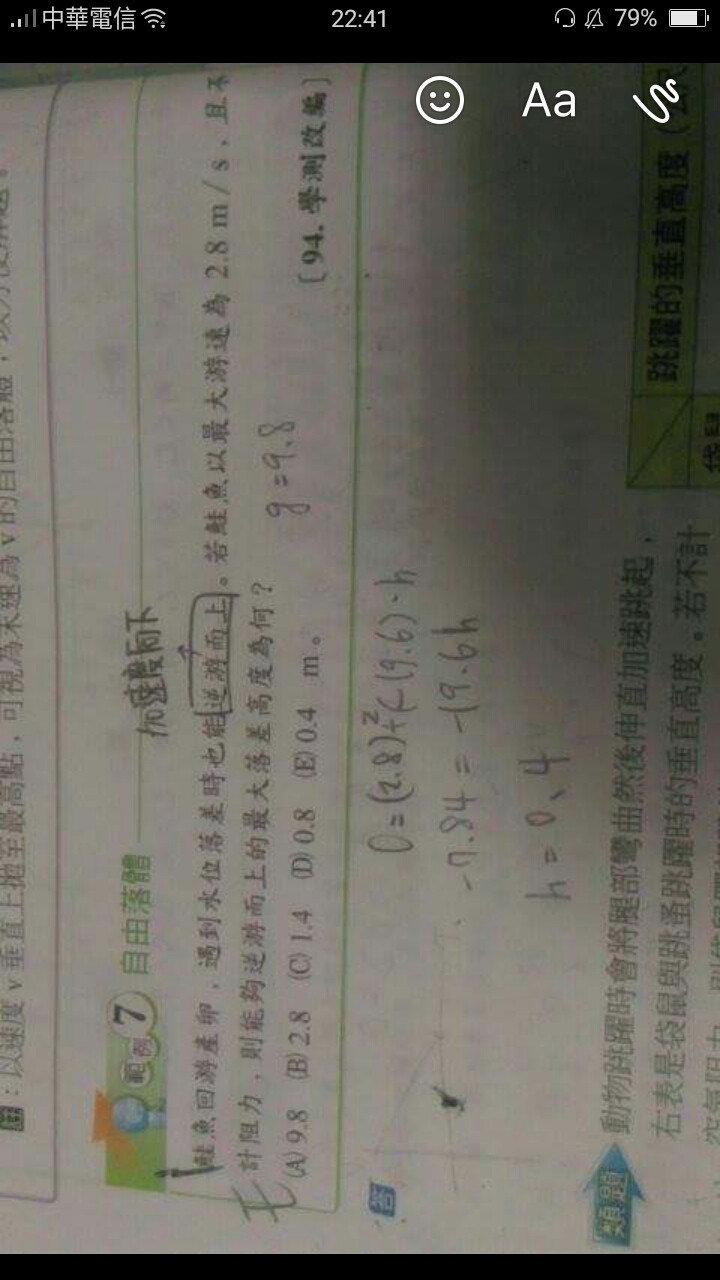 中華電信
22:41
79%
Aa
：以速度 v 垂直上拋至最高點，可視為末速為 v 的自由落體，以方便解題。
範例 7 自由落體
加速度向下
鮭魚回游產卵，遇到水位落差時也能逆游而上。若鮭魚以最大游速為 2.8 m/s，且不
計阻力，則能夠逆游而上的最大落差高度為何？
g=9.8
(A)9.8 (B)2.8 (C)1.4 (D)0.8 (E)0.4 m。
〔94. 學測改編〕
答
0=(2.8)²+(-19.6)·h
-7.84=-19.6h
h=0.4
類題
動物跳躍時會將腿部彎曲然後伸直加速跳起，
右表是袋鼠與跳蚤跳躍時的垂直高度。若不計
跳躍的垂直高度
袋鼠